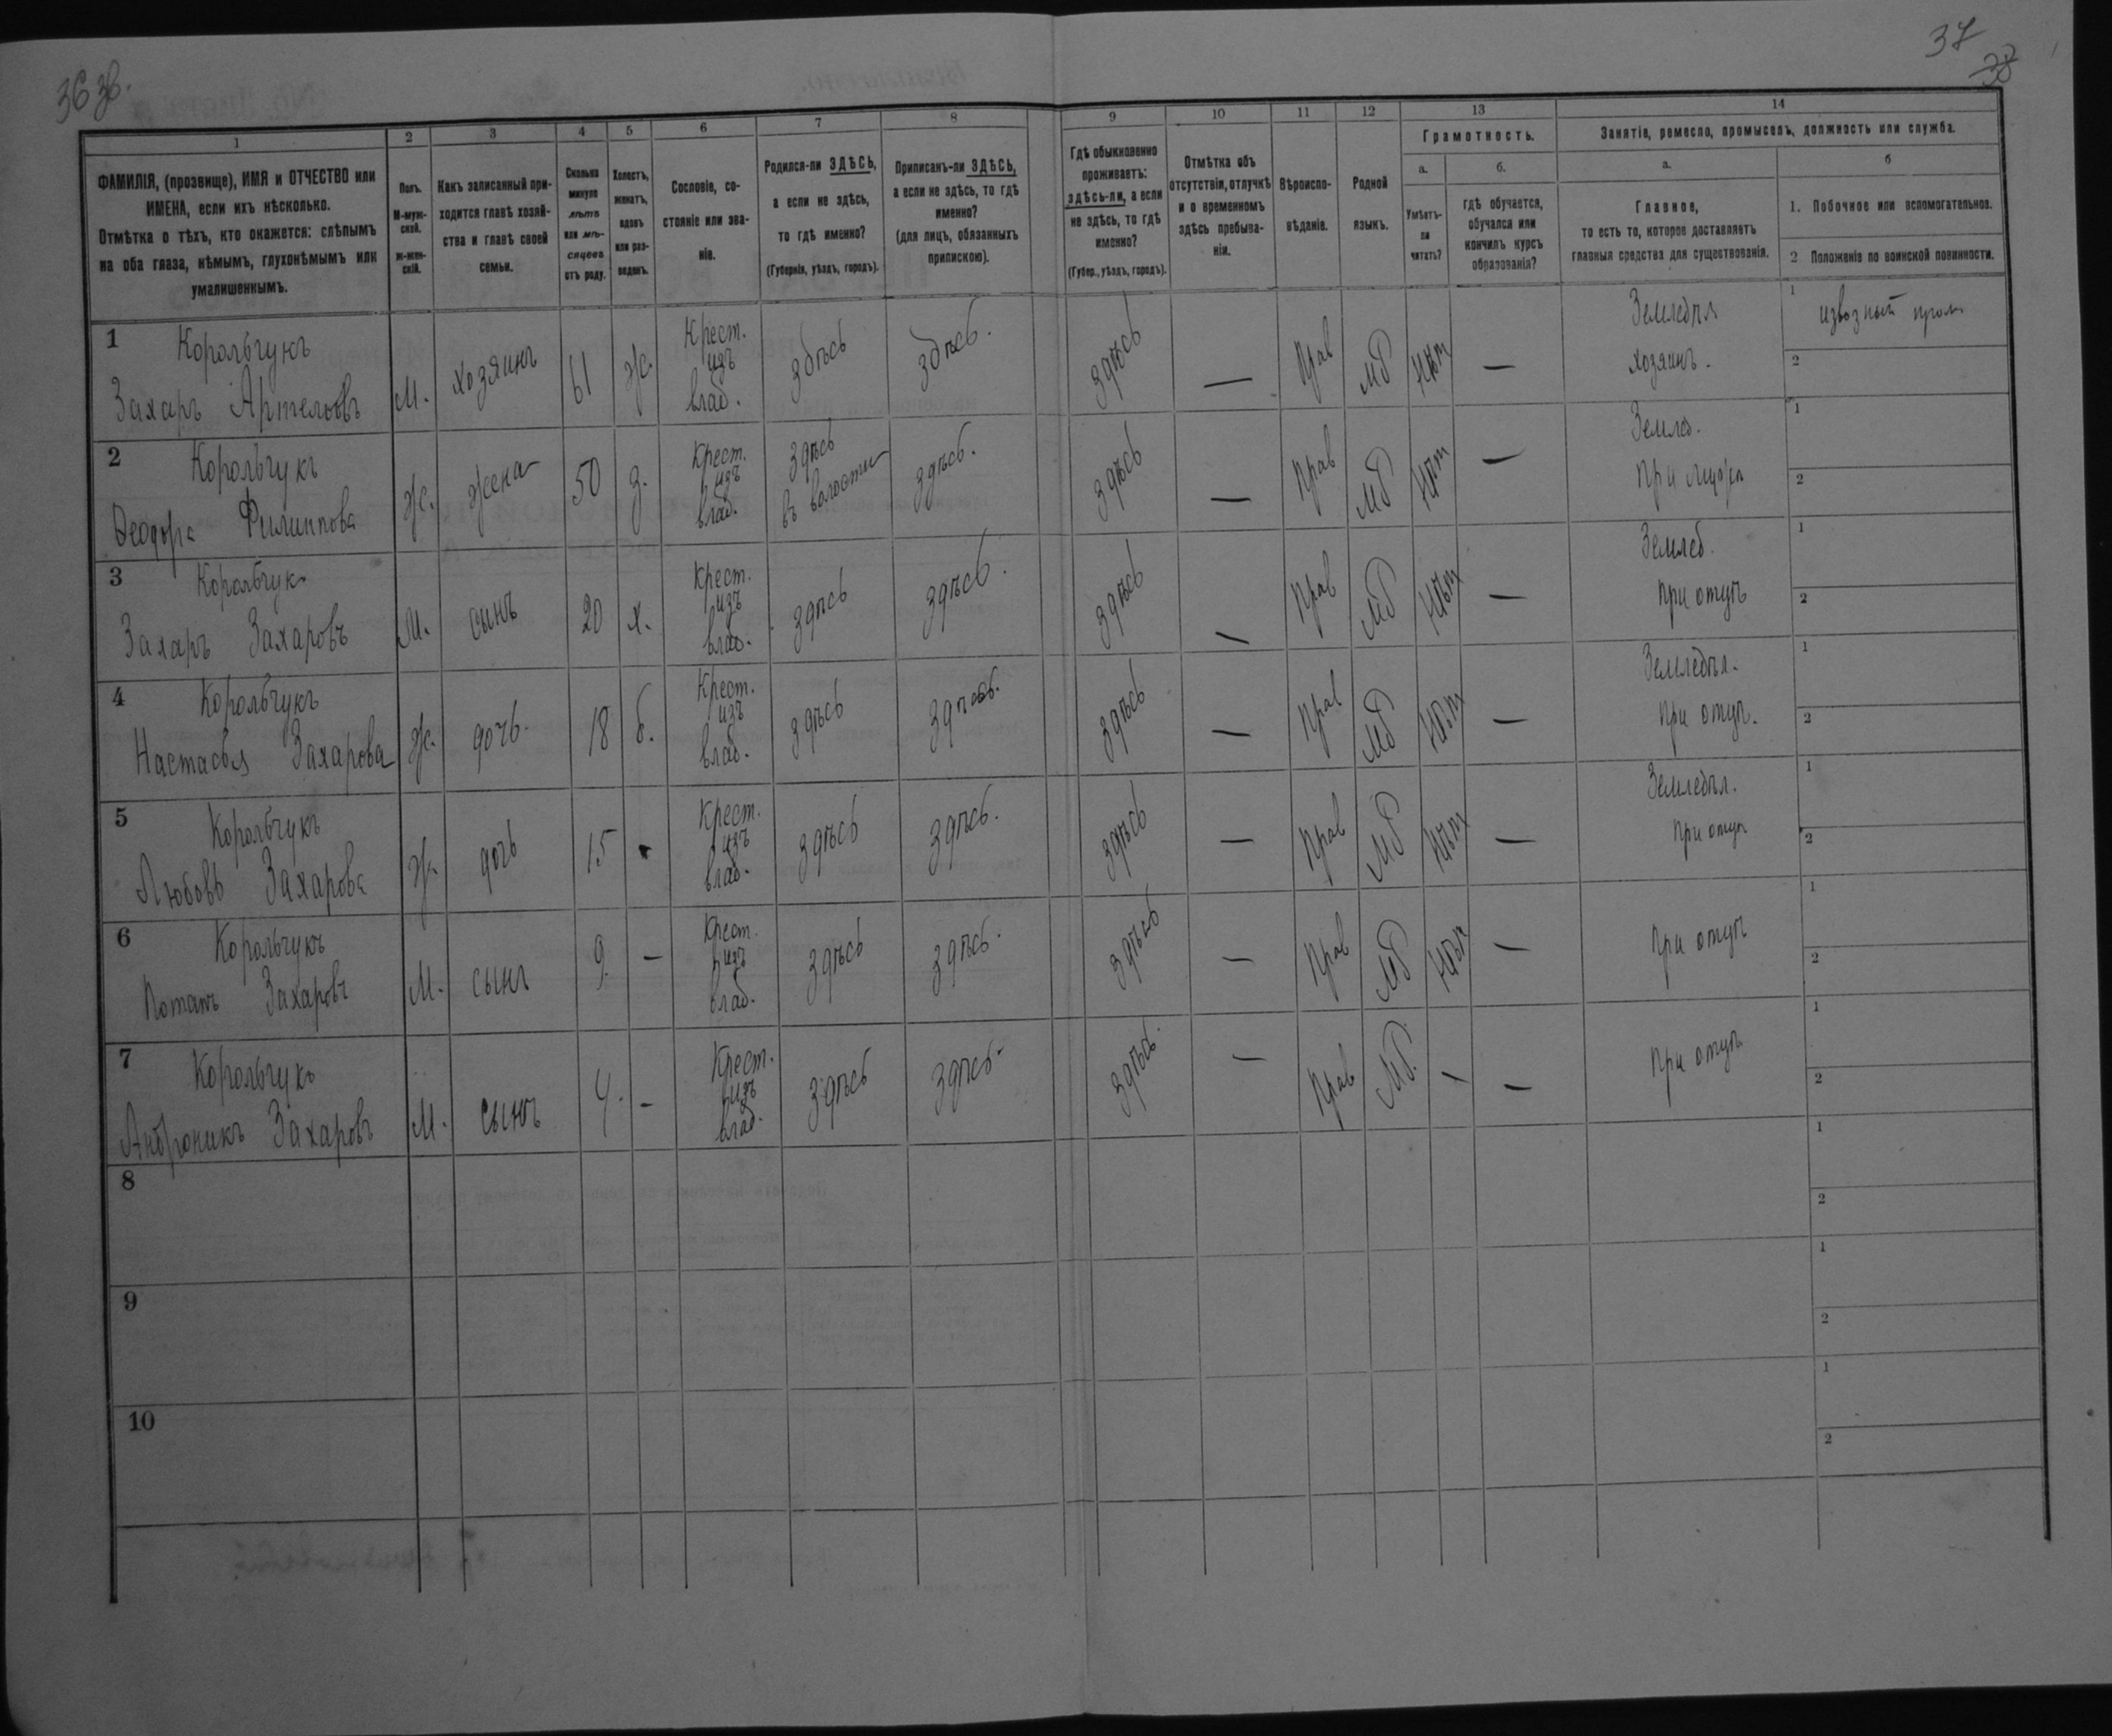 36 зв.
37
38
1 2 3 4 5 6 7 8 9 10 11 12 13 14
ФАМИЛІЯ, (прозвище), ИМЯ и ОТЧЕСТВО или
ИМЕНА, если ихъ нѣсколько.
Отмѣтка о тѣхъ, кто окажется: слѣпымъ
на оба глаза, нѣмымъ, глухонѣмымъ или
умалишеннымъ.
Полъ.
М-муж-
ской.
ж-жен-
скій.
Какъ записанный при-
ходится главѣ хозяй-
ства и главѣ своей
семьи.
Сколько
минуло
лѣтъ
или мѣ-
сяцевъ
отъ роду.
Холостъ,
женатъ,
вдовъ
или раз-
веденъ.
Сословіе, со-
стояніе или зва-
ніе.
Родился-ли ЗДѢСЬ,
а если не здѣсь,
то гдѣ именно?
(Губернія, уѣздъ, городъ).
Приписанъ-ли ЗДѢСЬ,
а если не здѣсь, то гдѣ
именно?
(для лицъ, обязанныхъ
припискою).
Гдѣ обыкновенно
проживаетъ:
здѣсь-ли, а если
не здѣсь, то гдѣ
именно?
(Губер., уѣздъ, городъ).
Отмѣтка объ
отсутствіи, отлучкѣ
и о временномъ
здѣсь пребыва-
ніи.
Вѣроиспо-
вѣданіе.
Родной
языкъ.
Грамотность.
а.
Умѣетъ-
ли
читать?
б.
гдѣ обучается,
обучался или
кончилъ курсъ
образованія?
Занятіе, ремесло, промыселъ, должность или служба.
а.
Главное,
то есть то, которое доставляетъ
главныя средства для существованія.
б
1. Побочное или вспомогательное.
2 Положеніе по воинской повинности.
1 Корольчукъ
Захаръ
М. хозяинъ 61 ж. Крест. изъ влад. здѣсь здѣсь. здѣсь — Прав МР нѣт —
Земледѣл
хозяинъ.
1 извозный пром
2
2 Корольчукъ
Ѳеодора Филиппова
ж. жена 50 з. Крест. изъ влад. здѣсь въ волости здѣсь. здѣсь — Прав МР нѣт —
Землед.
При
1
2
3 Корольчукъ
Захаръ Захаровъ
М. сынъ 20 х. Крест. изъ влад. здѣсь здѣсь. здѣсь — Прав МР нѣт —
Землед.
при отцѣ
1
2
4 Корольчукъ
Настасья Захарова
ж. дочь. 18 б. Крест. изъ влад. здѣсь здѣсь. здѣсь — Прав МР нѣт —
Земледѣл.
при отцѣ.
1
2
5 Корольчукъ
Любовь Захарова
ж дочь 15 Крест. изъ влад. здѣсь здѣсь. здѣсь — Прав МР нѣт —
Земледѣл.
при отцѣ
1
2
6 Корольчукъ
Потапъ Захаровъ
М. сынъ 9. — Крест. изъ влад. здѣсь здѣсь. здѣсь — Прав МР нѣт —
при отцѣ
1
2
7 Корольчукъ
Андроникъ Захаровъ
М. сынъ 4. — Крест. изъ влад. здѣсь здѣсь. здѣсь. — Прав МР. — —
при отцѣ
1
2
8
1
2
9
1
2
10
1
2